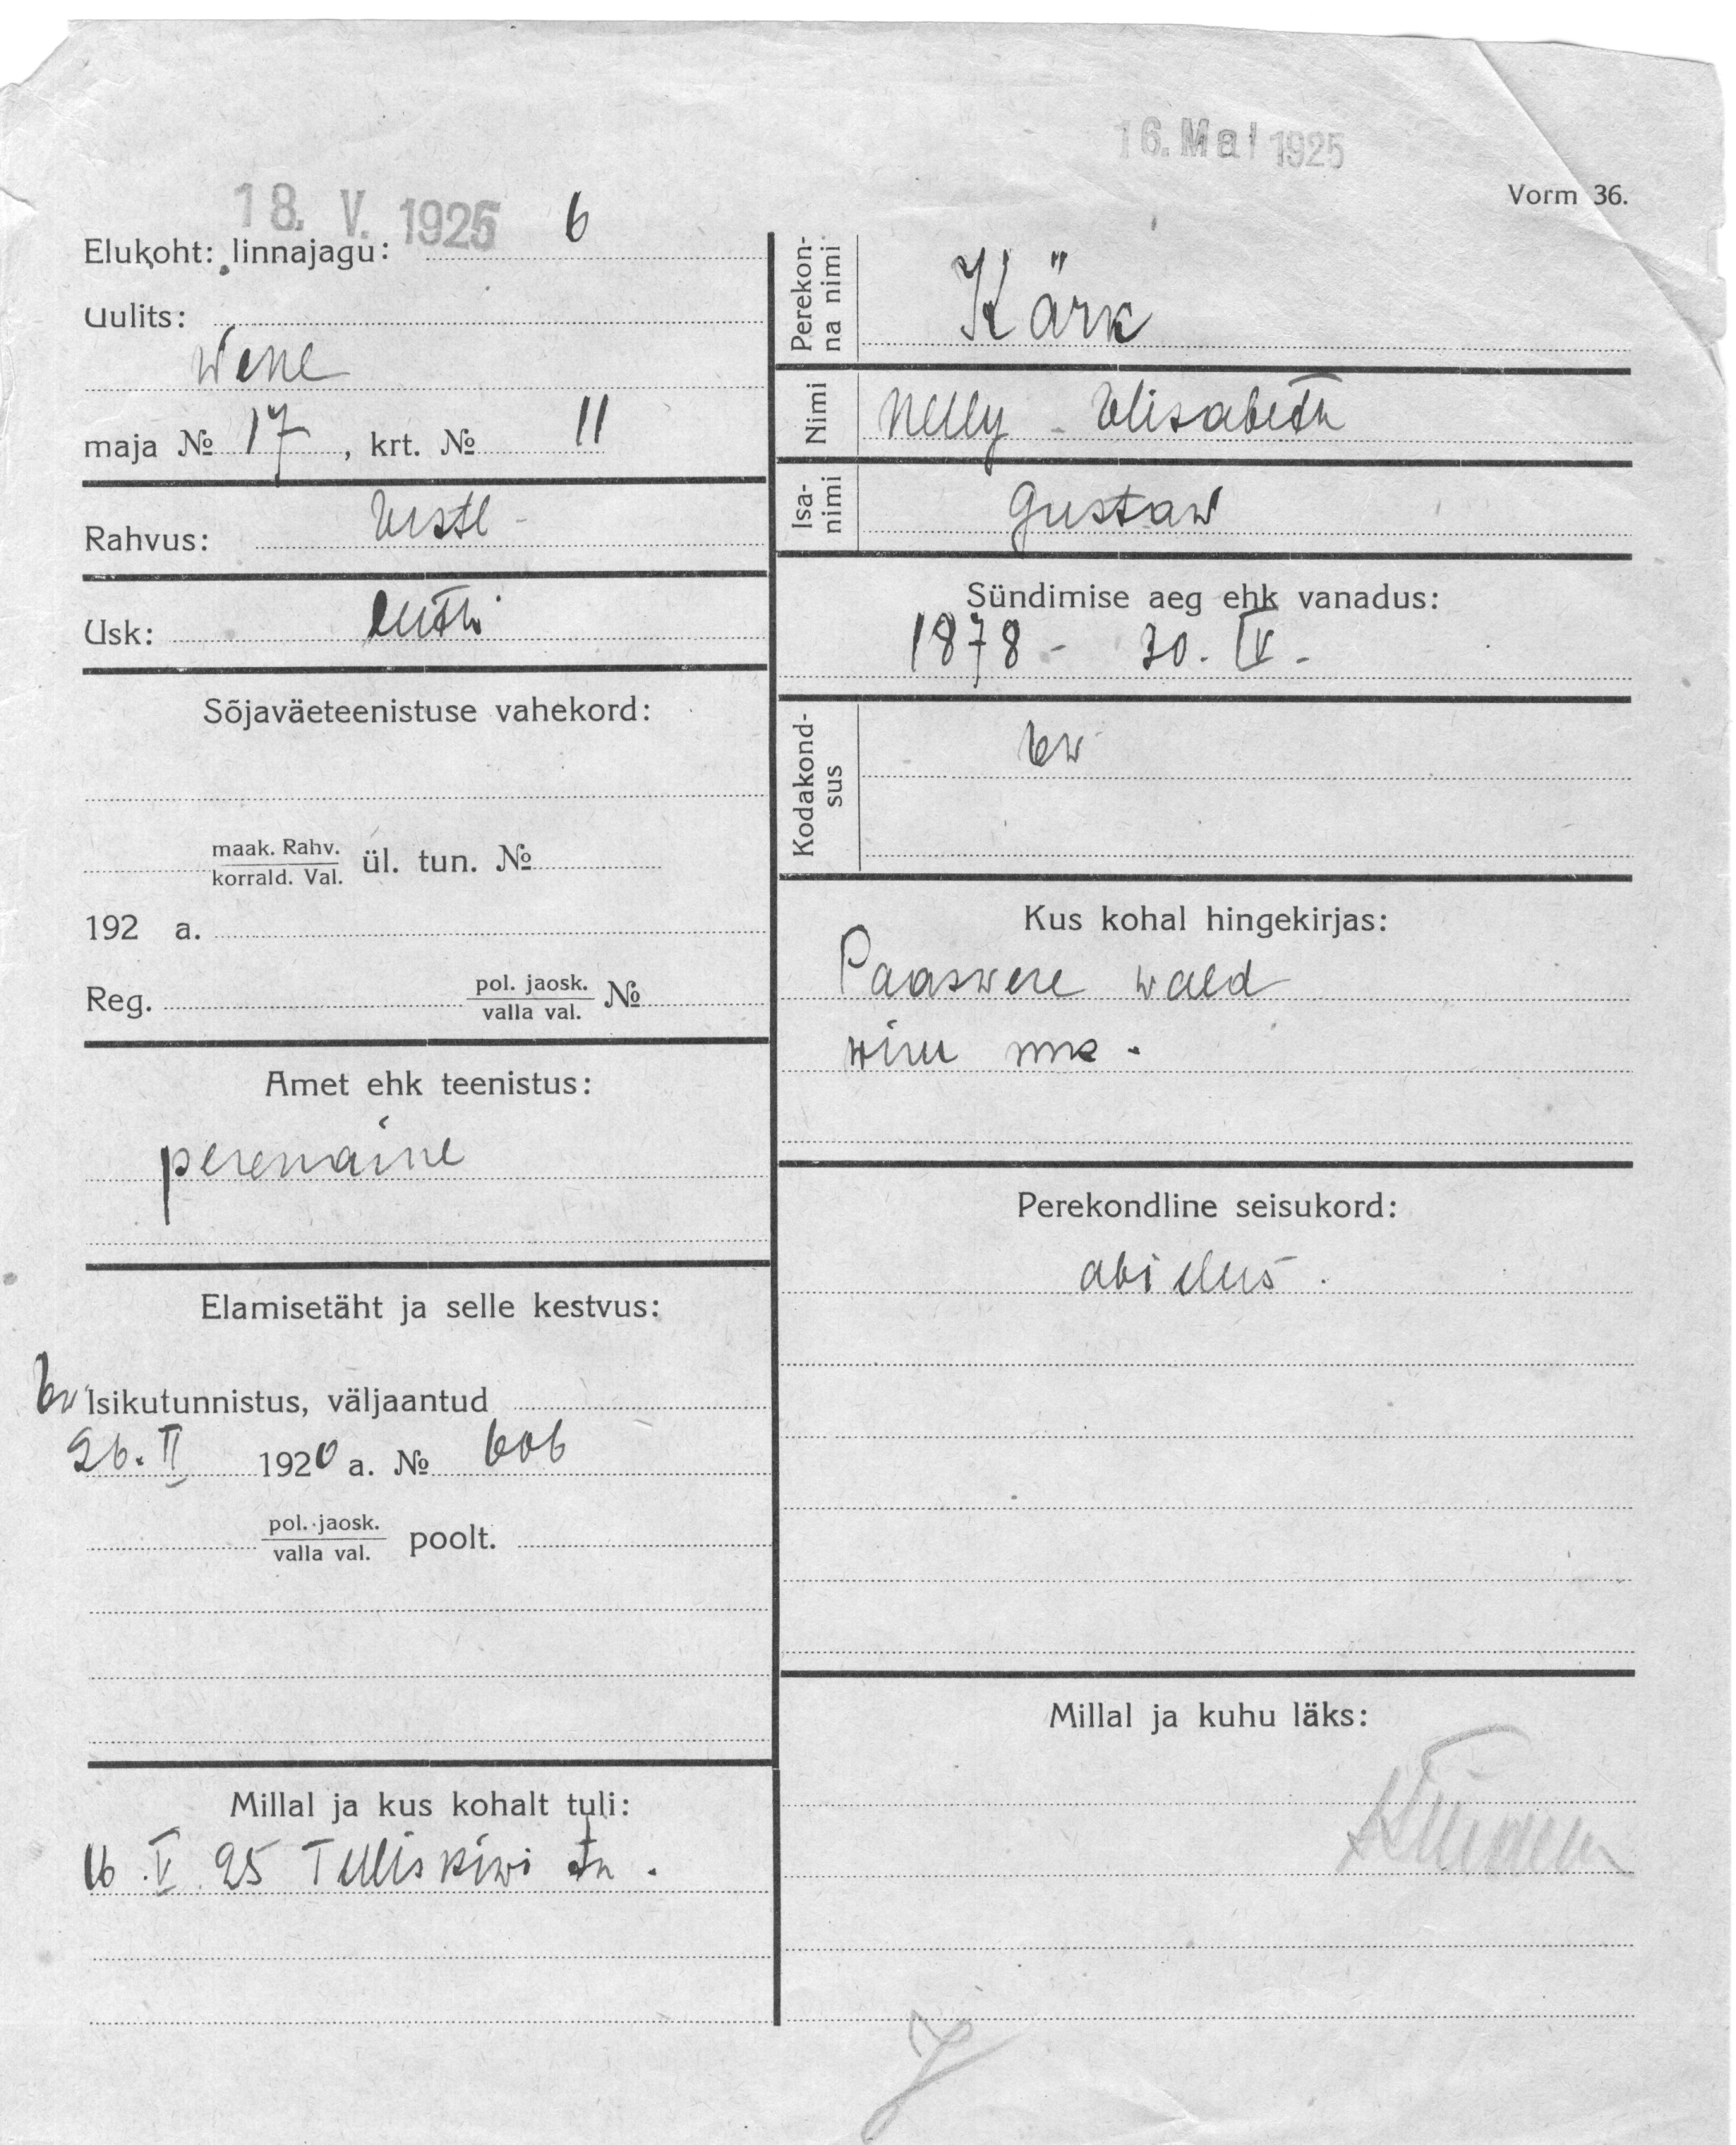 16. Mai 1925
Vorm 36.
18. V. 1925 6
Elukoht: linnajagu:
Uulits:
Wene
maja № 17, krt. № 11
Rahvus: Eestl
Usk: luth
Sõjaväeteenistuse vahekord:
maak. Rahv.
korrald. Val. ül. tun. №
192 a.
Reg. pol. jaosk.
valla val. №
Amet ehk teenistus:
perenaine
Elamisetäht ja selle kestvus:
Ev Isikutunnistus, väljaantud
26. II 1920 a. № 606
pol. jaosk.
valla val. poolt.
Millal ja kus kohalt tuli:
16. V. 25 Telliskiwi tn.
Perekon-
na nimi
Kärk
Nimi Nelly - Elisabeth
Isa-
nimi Gustaw
Sündimise aeg ehk vanadus:
1878 - 30. IV -
Kodakond-
sus
Ew
Kus kohal hingekirjas:
Paaswere wald
Wiru mk.
Perekondline seisukord:
abielus.
Millal ja kuhu läks: